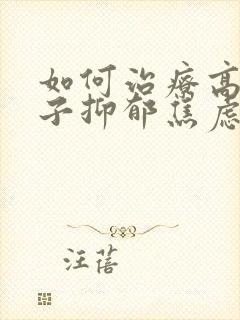 如何治疗高
子抑郁焦虑
汪蓓